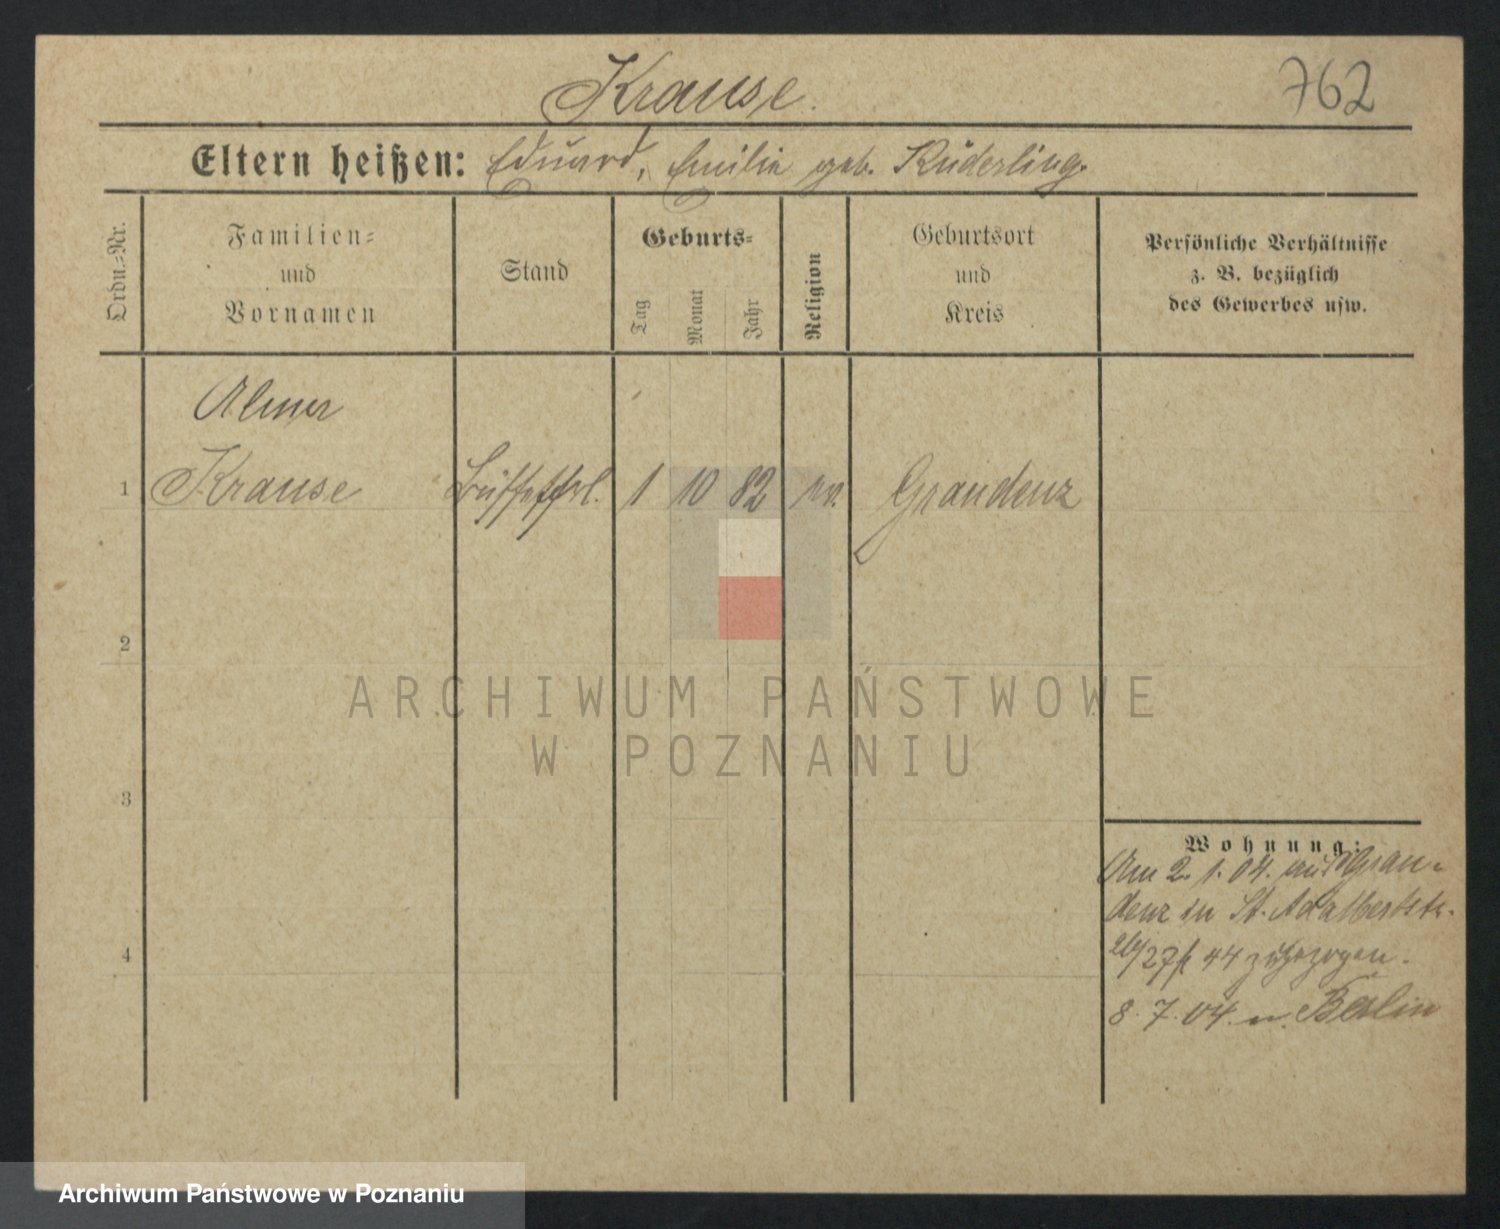 Krause.
762
Eltern heißen: Eduard, Emilie geb. Rüderling.
Ordn.-Nr.
Familien-
und
Vornamen
Stand
Geburts-
Tag
Monat
Jahr
Religion
Geburtsort
und
Kreis
Persönliche Verhältnisse
z. B. bezüglich
des Gewerbes usw.
1
Krause
Büffetfrl.
1
10
82
ev.
Graudenz
2
3
4
Wohnung:
Am 2. 1. 04. aus Grau-
denz in St. Adalbertstr.
26/27 44 zugezogen.
8. 7. 04. n. Berlin
ARCHIWUM PAŃSTWOWE
W POZNANIU
Archiwum Państwowe w Poznaniu